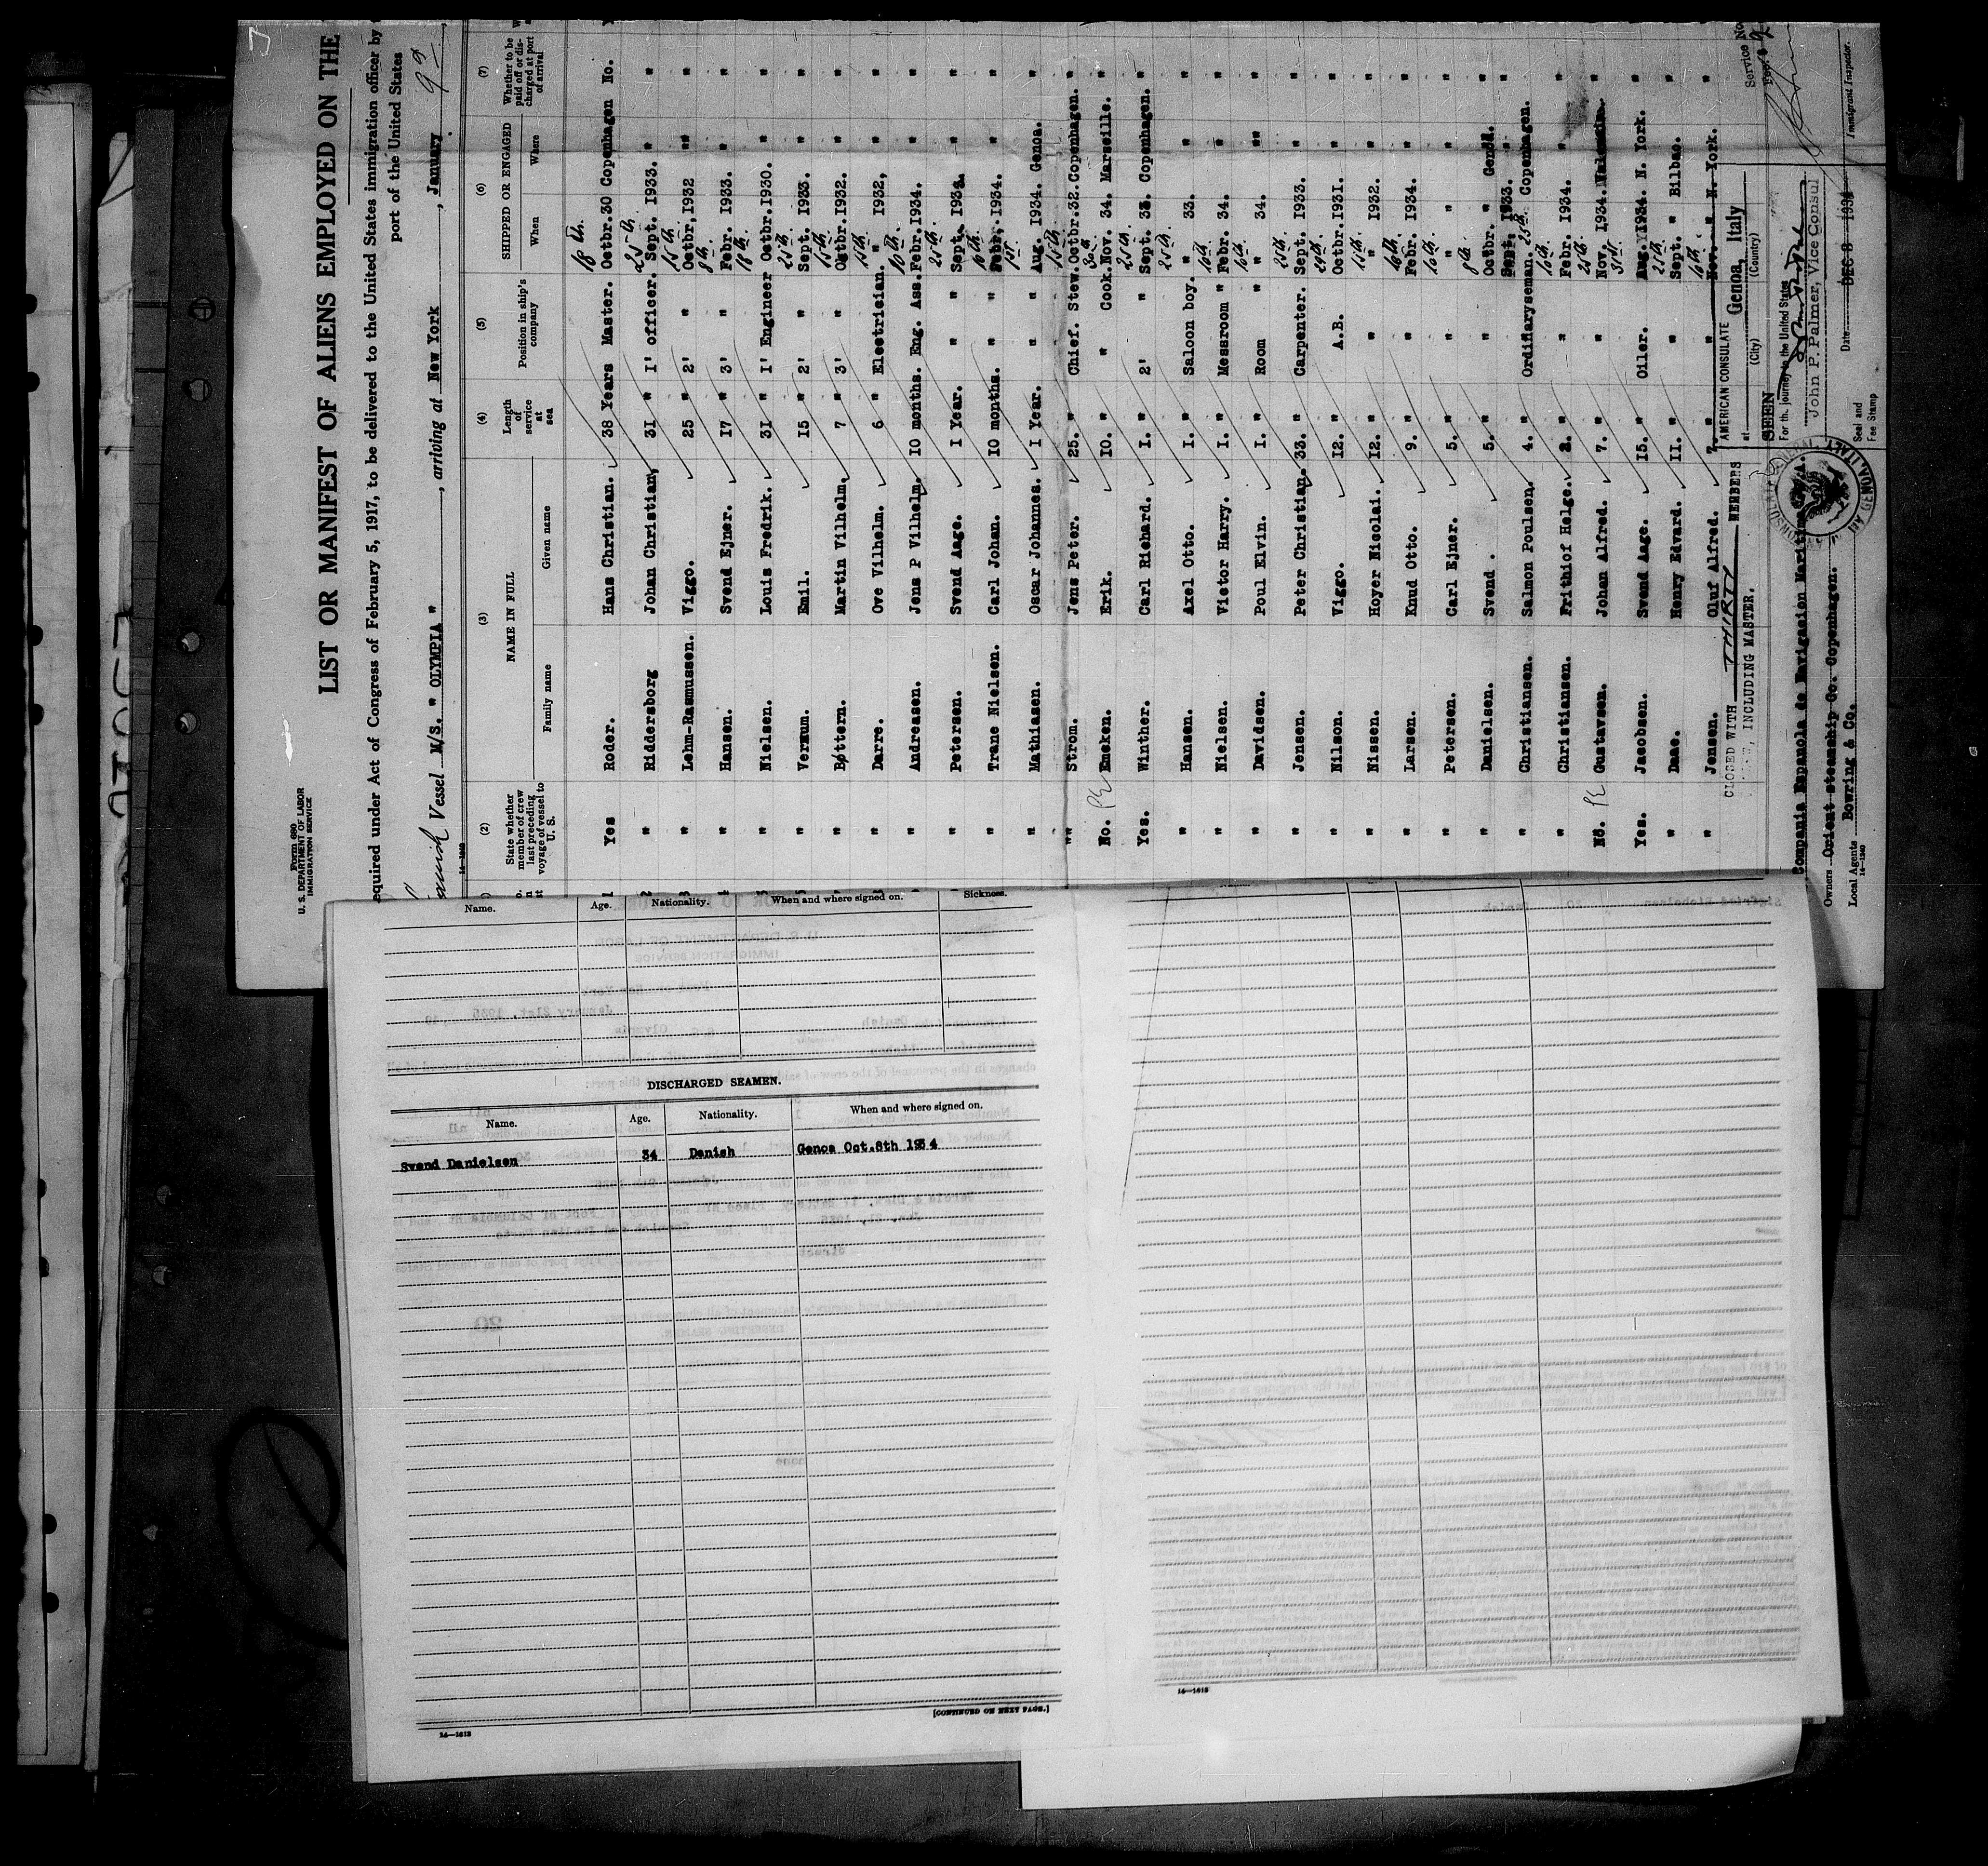 Form 680
U. S. DEPARTMENT OF LABOR
IMMIGRATION SERVICE
LIST OR MANIFEST OF ALIENS EMPLOYED ON THE
equired under Act of Congress of February 5, 1917, to be delivered to the United States immigration officer by
port of the United States
Vessel M/S. " OLYMPIA " , arriving at New York , January
(2) (3) (4) (5) (6) (7)
State whether member of crew last preceding voyage of vessel to U. S. NAME IN FULL Family name Given name Length of service at sea Position in ship's company SHIPPED OR ENGAGED When Where Whether to be paid off or discharged at port of arrival
1 Yes Roder. Hans Christian. 38 Years Master. 18th. Octbr. 30 Copenhagen No.
2 " Riddersborg Johan Christian, 31 " 1' officer. 25th Sept. 1933. " "
3 " Lehm-Rasmussen. Viggo. 25 " 2' " 15th Octbr, 1932 " "
4 " Hansen. Svend Ejner. 17 " 3' " 8th Febr. 1933. " "
" Nielsen. Louis Fredrik. 31 " 1' Engineer 18th Octbr. 1930. " "
" Vermum. Emil. 15 " 2' " 25th Sept. 1933. " "
" Bøttern. Martin Vilhelm, 7 " 3' " 15th Oktbr. 1932. " "
" Darre. Ove Vilhelm. 6 " Electrician. 15th " 1932, " "
" Andreasen. Jens P Vilhelm. 10 months. Eng. Ass. 10th Febr. 1934. " "
" Petersen. Svend Aage. 1 Year. " 25th Sept. 1934. " "
" Trane Nielsen. Carl Johan. 10 months. " 10th Febr. 1934. " "
" Mathiasen. Oscar Johannes. 1 Year. " 1st Aug. 1934. Genoa. "
" Strom. Jens Peter. 25. " Chief. Stew. 15th Octbr. 32. Copenhagen. "
No. Emcken. Erik. 10. " " Cook. Nov. 34. Marseille. "
Yes. Winther. Carl Richard. 1. " 2' " 25th Sept. 33. Copenhagen. "
" Hansen. Axel Otto. 1. " Saloon boy. 25th " 33. " "
" Nielsen. Victor Harry. 1. " Messroom " 10th Febr. 34. " "
" Davidsen. Poul Elvin. 1. " Room " 10th " 34. " "
" Jensen. Peter Christian. 33. " Carpenter. 25th Sept. 1933. " "
" Nilson. Viggo. 12. " A.B. 29th Octbr. 1931. " "
" Nissen. Hoyer Nicolai. 12. " " 15th " 1932. " "
" Larsen. Knud Otto. 9. " " 10th Febr. 1934. " "
" Petersen. Carl Ejner. 5. " " 10th " " " "
" Danielsen. Svend . 5. " " 8th Octbr. " Genoa. "
" Christiansen. Salmon Poulsen. 4. " Ordinaryseman. 25th Sept. 1933. Copenhagen. "
" Christiansen. Frithiof Helge. 2. " " 10th Febr. 1934. " "
No. Gustavsen. Johan Alfred. 7. " " 25th Nov. 1934. "
Yes. Jacobsen. Svend Aage. 15. " Oiler. 31st Aug. 1934. N. York. "
" Daae. Henry Edvard. 11. " " 25th Sept. " Bilbao. "
" Jensen. Oluf Alfred. 7. " " 10th Nov. " N. York. "
CLOSED WITH THIRTY MEMBERS
, INCLUDING MASTER.
AMERICAN CONSULATE
at Genoa, Italy
(City) (Country)
SEEN
For the journey to the United States
John P. Palmer, Vice Consul
Date DEC 8 1934
Seal and
Fee Stamp
Service No.
Immigrant Inspector.
Compania Espanola de Navigacion Maritima S.A.
Owners Orient steamship Co. Copenhagen.
Local Agents Bowring & Co.
14—1240
Name. Age. Nationality. When and where signed on. Sickness.
DISCHARGED SEAMEN.
Name. Age. Nationality. When and where signed on.
Svend Danielsen 34 Danish Genoa Oct.8th 1934
[CONTINUED ON NEXT PAGE.]
14—1613
14—1613